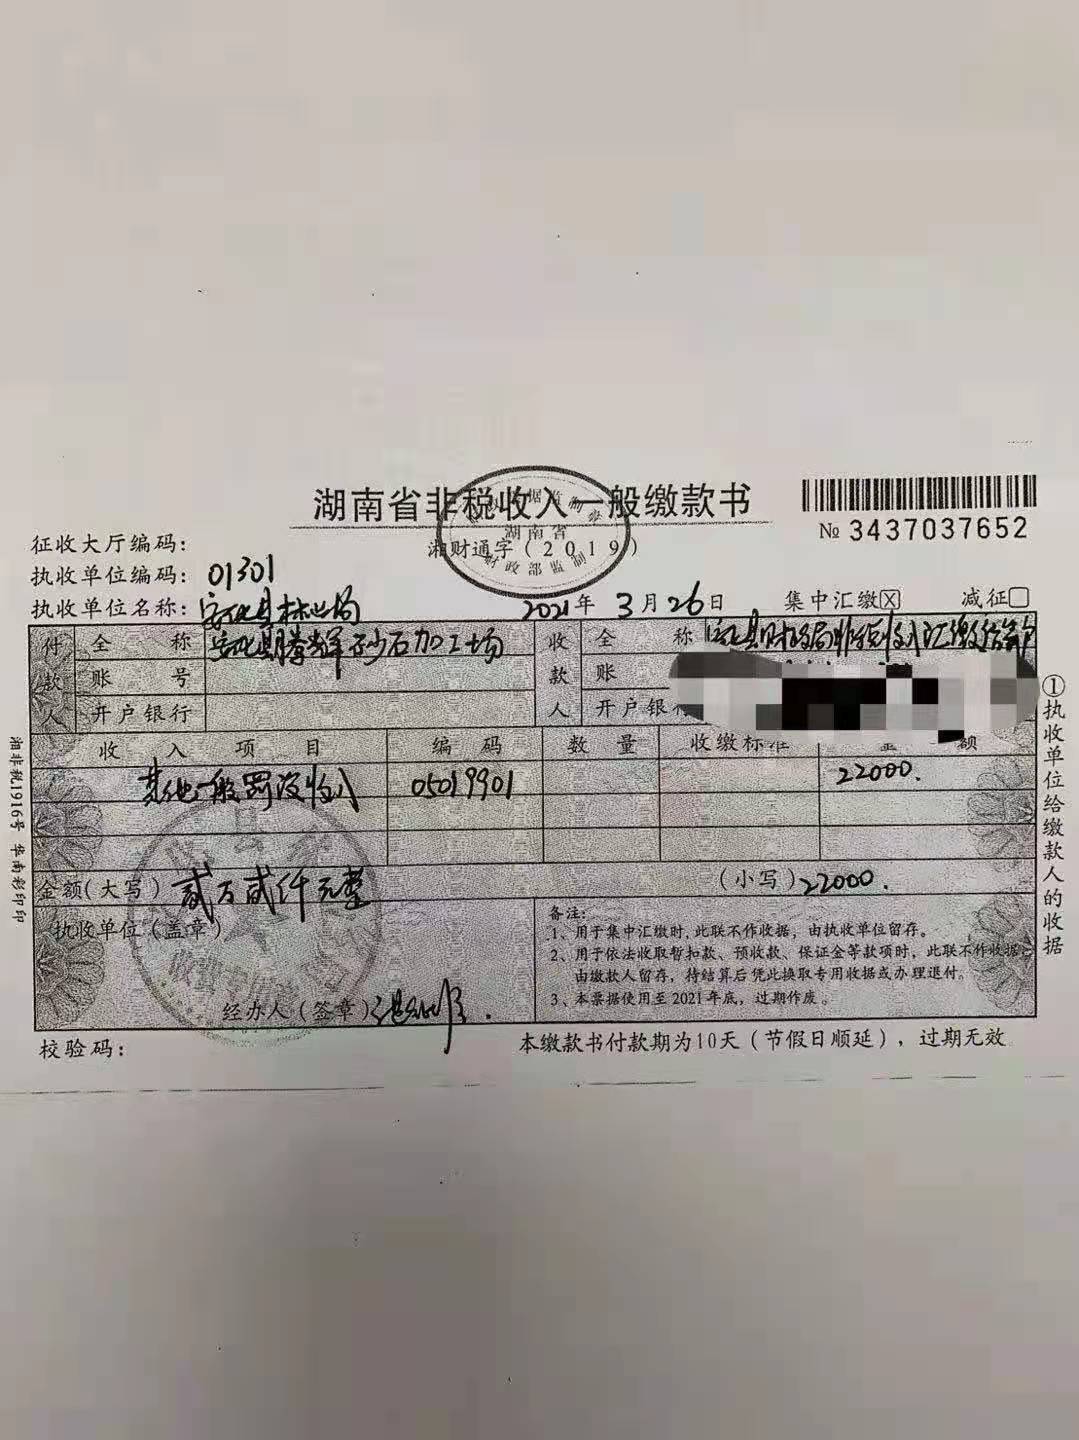 湖南省非税收入一般缴款书
湘财通字（2019）
湖南省
财政部监制
№ 3437037652
征收大厅编码：
执收单位编码：01301
执收单位名称：安化县林业局
2021年 3月26日 集中汇缴☒ 减征□
付款人 全称 安化县 辉砂石加工场
收款人 全称 安化县财政局非税收入汇缴结算户
账号 账
开户银行 开户银行
收入项目 编码 数量 收缴标准 金额
其他一般罚没收入 05019901 22000.
金额（大写）贰万贰仟元整 （小写）22000.
执收单位（盖章）
经办人（签章）
备注：
1、用于集中汇缴时，此联不作收据，由执收单位留存。
2、用于依法收取暂扣款、预收款、保证金等款项时，此联不作收据，
由缴款人留存，待结算后凭此换取专用收据或办理退付。
3、本票据使用至2021年底，过期作废。
校验码：
本缴款书付款期为10天（节假日顺延），过期无效
①执收单位给缴款人的收据
湘非税1916号 华南彩印印